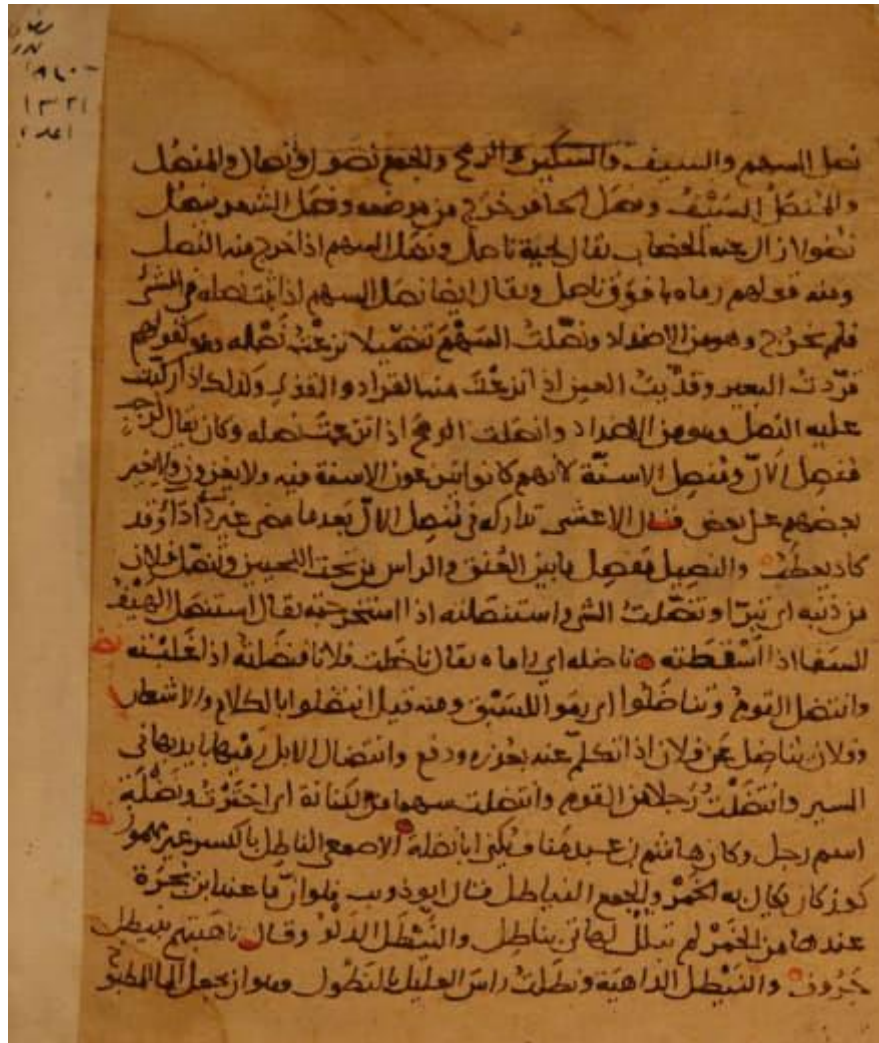 نصل السهم والسيف والسكين والرمح والجمع نصول ونصال والمنصل
والمُنصَلُ السَيْفُ ونصل الحافر خرج من موضعه ونصل الشعر ينصل
نصولا زال عنه الخضاب يقال لحية ناصل ونصل السهم اذا خرج منه النصل
ومنه قولهم رماه بافوق ناصل ويقال ايضا نصل السهم اذا ثبت نصله في الشئ
فلم يخرج وهو من الاضداد ونصّلتُ السَهْمَ تنصيلا نزعْتُ نَصْله وهو كقولهم
قرّدتُ البعير وقذّيتُ العين اذا نزعْتَ منها القراد والقذى وكذلك اذا ركبت
عليه النصل وهو من الاضداد وانصلت الرمح اذا نزعت نصله وكان يقال لرجب
مُنصِل الألّ ومُنصِل الاسنّة لانهم كانوا ينزعون الاسنة فيه ولا يغزون ولا يغير
بعضهم على بعض قال الاعشى تداركه في مُنْصِل الالّ بعدما مضى غير دأداءٍ وقد
كاد يعطَبُ والنصيل مَفصِل ما بين العُنق والراس من تحت اللحيين وتنصّل فلان
من ذنبه اى تبرّأ وتنصّلتُ الشئ واستنصلته اذا استخرجته يقال استنصل الهيف
السفا اذا اَسْقَطَته ناضله اى راماه يقال ناضَلت فلانا فنضَلته اذا غَلَبْته
نض
وانتضل القومُ وتناضَلُوا اى رمَوا للسَبْق ومنه قيل انتضلوا بالكلام والاشعار
وفلان يناضِل عن فلان اذا تكلّم عنه بعُذره ودفع وانتضال الابل رَمْيُها بايديها فى
السير وانتضَلْتُ رَجلا من القوم وانتضلت سهما من الكنانة اى اختَرْتُ ونَضْلَة
اسم رجل وكان هاشم بن عبد مَناف يُكنى ابا نضلة الاصمعى الناطِل بالكسر غير مهموز
نط
كوز كان يكال به الخَمْرُ والجمع النياطل قال ابو ذويب فلو انّ ما عند ابن بُجْرَة
عندها من الخَمْرِ لم تبلل لهاتى بناطِل والنَّيْطَل الدَلْوُ وقال ناهَبْتهم بنيطل
جَرُوف والنَيْطل الداهِيَة ونطلتُ راسَ العليل بالنَطُول وهو ان يجعل الما المطبوخ